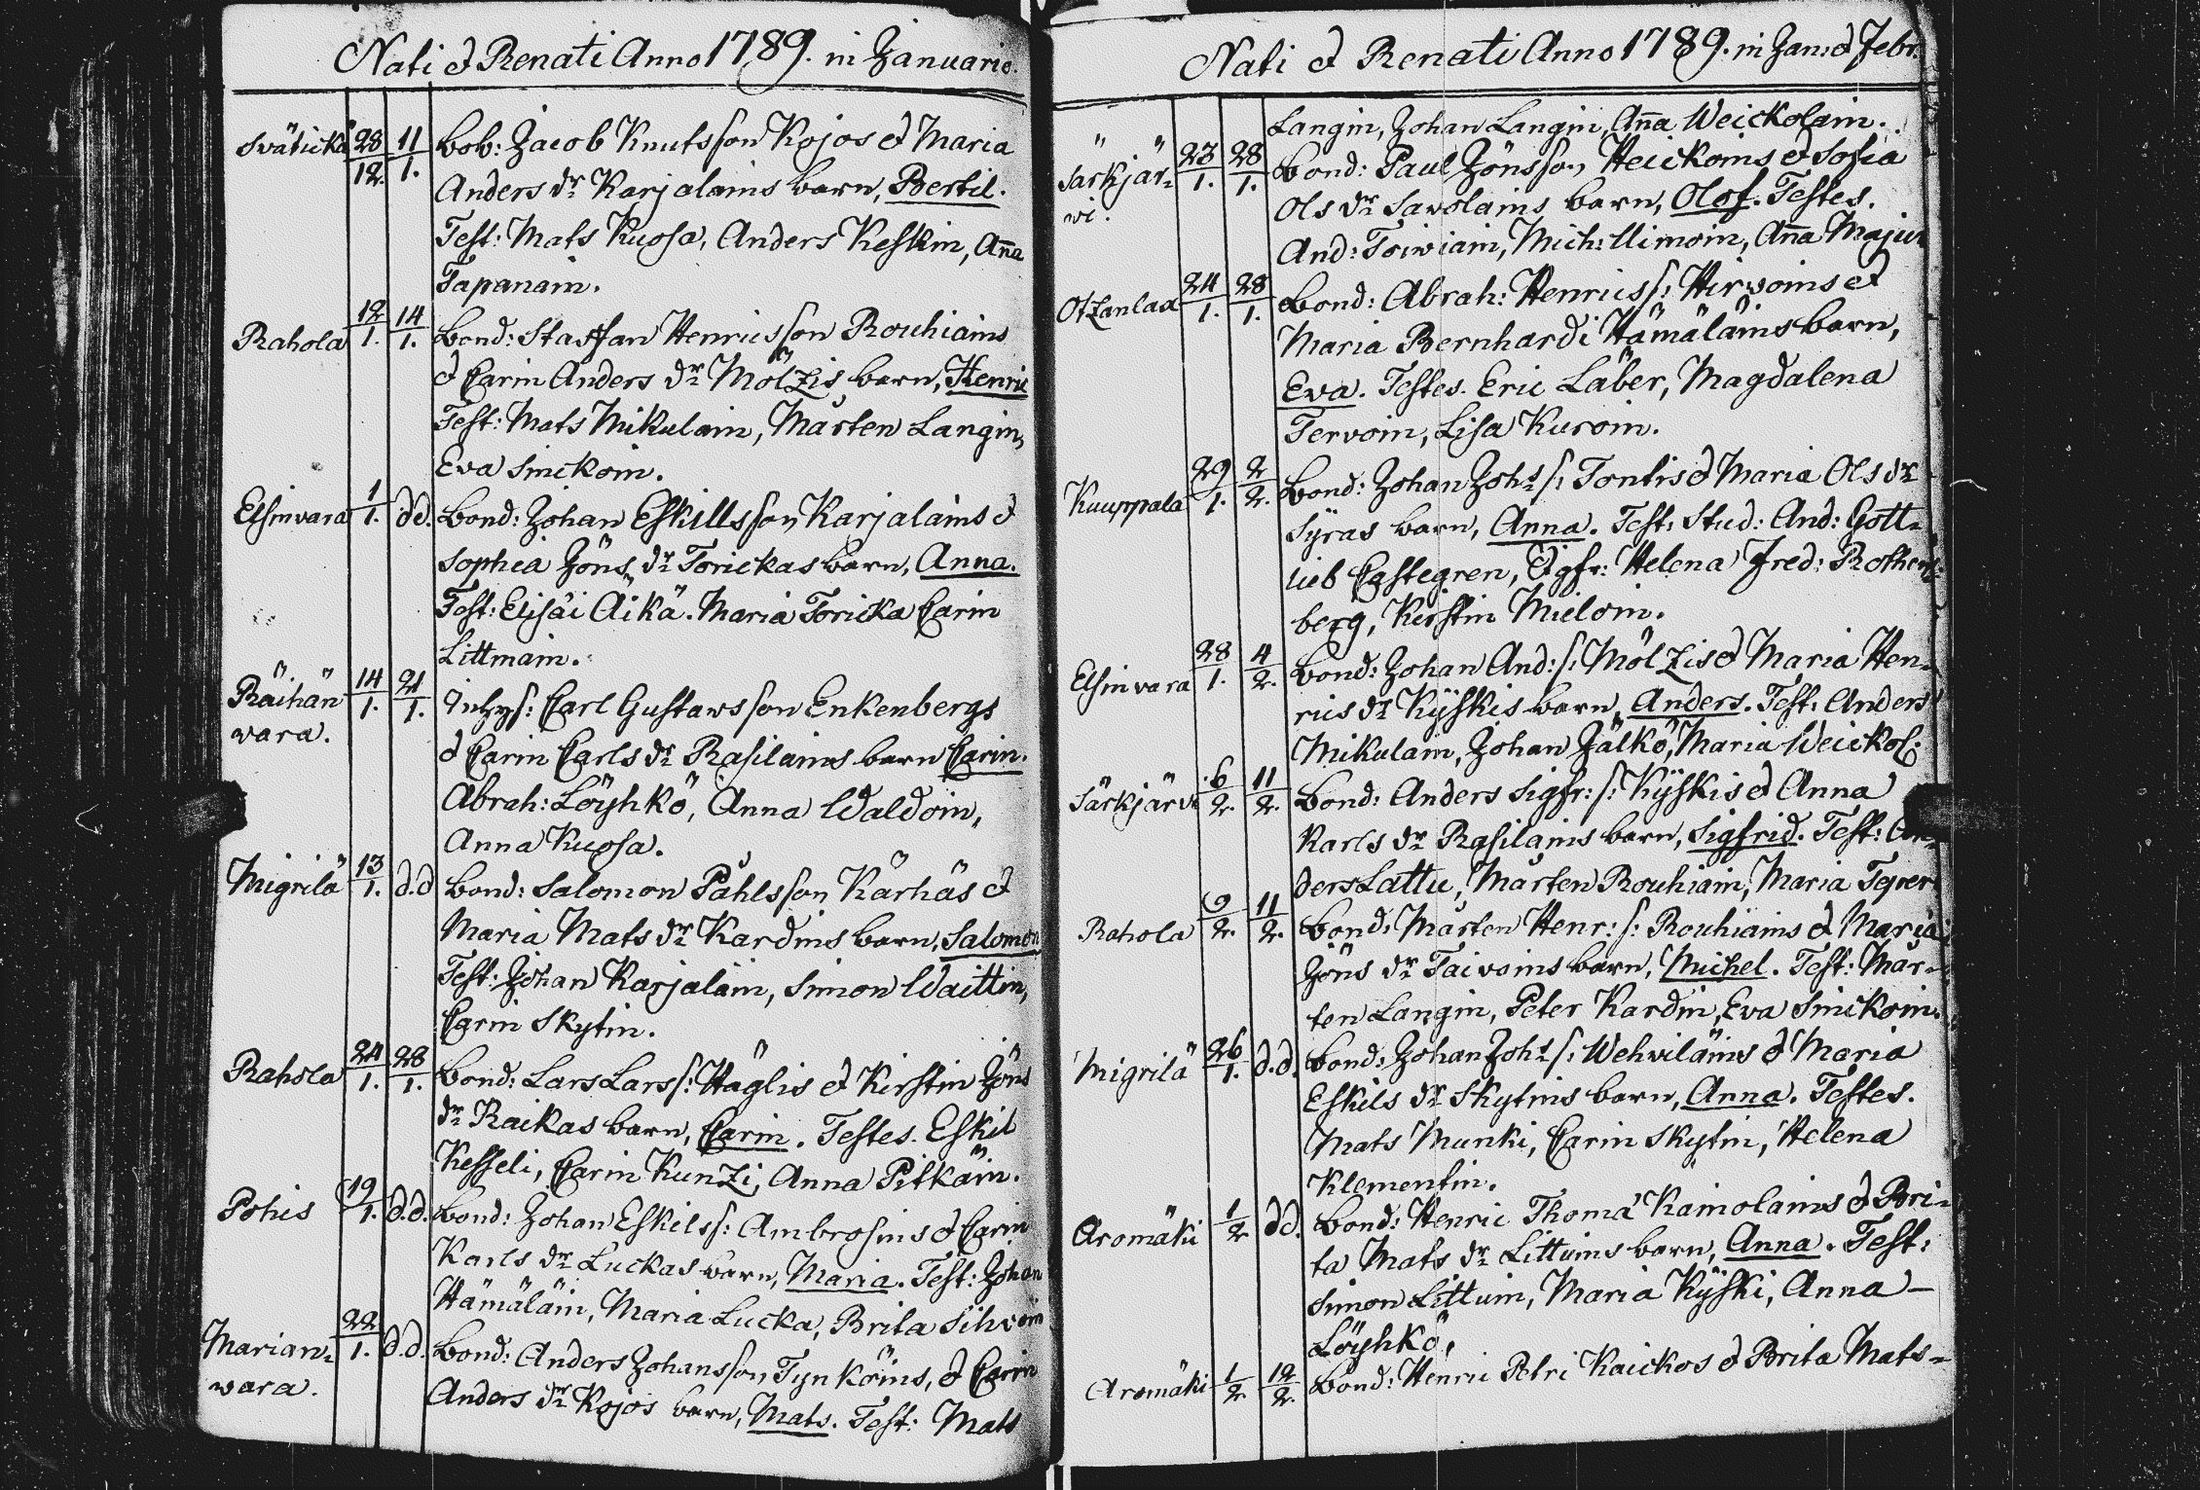 Nati et Renati Anno 1789. in Januario.
Svätickä 28/12. 11/1. Bob: Jacob Knutsson Kojos et Maria
Anders dr Karjalains barn, Bertil.
Test: Mats Kuosa, Anders Keskin, Aña
Tapanain.
Rahola 12/1. 14/1. Bond: Staffan Henricsson Rouhiains
et Carin Anders dr Mölzis barn, Henric
Test: Mats Mikulain, Mårten Langin,
Eva Sinckoin.
Elsinvara 1/1. d.d. Bond: Johan Eskillsson Karjalains et
Sophia Jöns dr Torickas barn, Anna.
Test: Elisäi Äikä. Maria Toricka Carin
Littmain.
Räihän 14/1. 21/1. Inhys: Carl Gustawsson Enkenbergs
wara. et Carin Carls dr Rasilains barn Carin.
Abrah: Löyhkö, Anna Waldoin,
Anna Kuosa.
Migrilä 13/1. d.d Bond: Salomon Påhlsson Kärhäs et
Maria Mats dr Kardins barn, Salomon
Test: Johan Karjalain, Simon Waittin,
Carin Skytin.
Rahola 24/1. 28/1. Bond: Lars Larss: Häglis et Kirstin Jöns
dr Raikas barn, Carin. Testes. Eskil
Kesseli, Carin Kunzi, Anna Pitkäin.
Pohis 19/1. d.d. Bond: Johan Eskilss: Ambrosins et Carin
Karls dr Luckas barn, Maria. Test: Johan
Hämäläin, Maria Lucka, Brita Sihvoin
Marian= 22/1. d.d. Bond: Anders Johansson Tynköins, et Carin
wara. Anders dr Kojos barn, Mats. Test: Mats
Nati et Renati Anno 1789. in Jan: et Febr.
Langin, Johan Langin, Aña Weickolain.
Särkjär= 23/1. 28/1. Bond: Paul Jönsson Heickoins et Sofia
wi. Ols dr Savolains barn, Olof. Testes.
And: Toiwiain, Mich: Uimoin, Aña Majur
Otzanlax 24/1. 28/1. Bond: Abrah: Henrics: Hirvoins et
Maria Bernhardi Hämäläins barn,
Eva. Testes. Eric Läber, Magdalena
Tervoin, Lisa Kuroin.
Kuuppala 29/1. 2/2. Bond: Johan Johs s: Tontis et Maria Ols dr
Syras barn, Anna. Test: Stud: And: Gott=
lieb Castegren, Jgfr: Helena Fred: Rothen=
berg, Kirstin Mieloin.
Elsinvara 28/1. 4/2. Bond: Johan And: s: Mölzis et Maria Hen=
rics dr Kÿskis barn, Anders. Test: Anders
Mikulain, Johan Jälkö, Maria Weickol:
Särkjärvi 6/2. 11/2. Bond: Anders Sigfr: s: Kÿskis et Anna
Karls dr Rasilains barn, Sigfrid. Test: An=
ders Lattu, Mårten Rouhiain, Maria
Rahola 9/2. 11/2. Bond: Mårten Henr: s: Rouhiains et Maria
Jöns dr Taivains barn, Michel. Test: Mår=
ten Langin, Peter Kardin, Eva Sinckoin.
Migrilä 26/1. d.d. Bond: Johan Johs s: Wehviläins et Maria
Eskils dr Skytins barn, Anna. Testes.
Mats Munki, Carin Skytin, Helena
Klementin.
Aromäki 1/2 d.d. Bond: Henric Thomæ Kainolains et Bri=
ta Mats dr Littuins barn, Anna. Test:
Simon Littuin, Maria Kÿski, Anna —
Löyhkö,
Aromäki 1/2 12/2. Bond: Henric Petri Kaickos et Brita Mats=